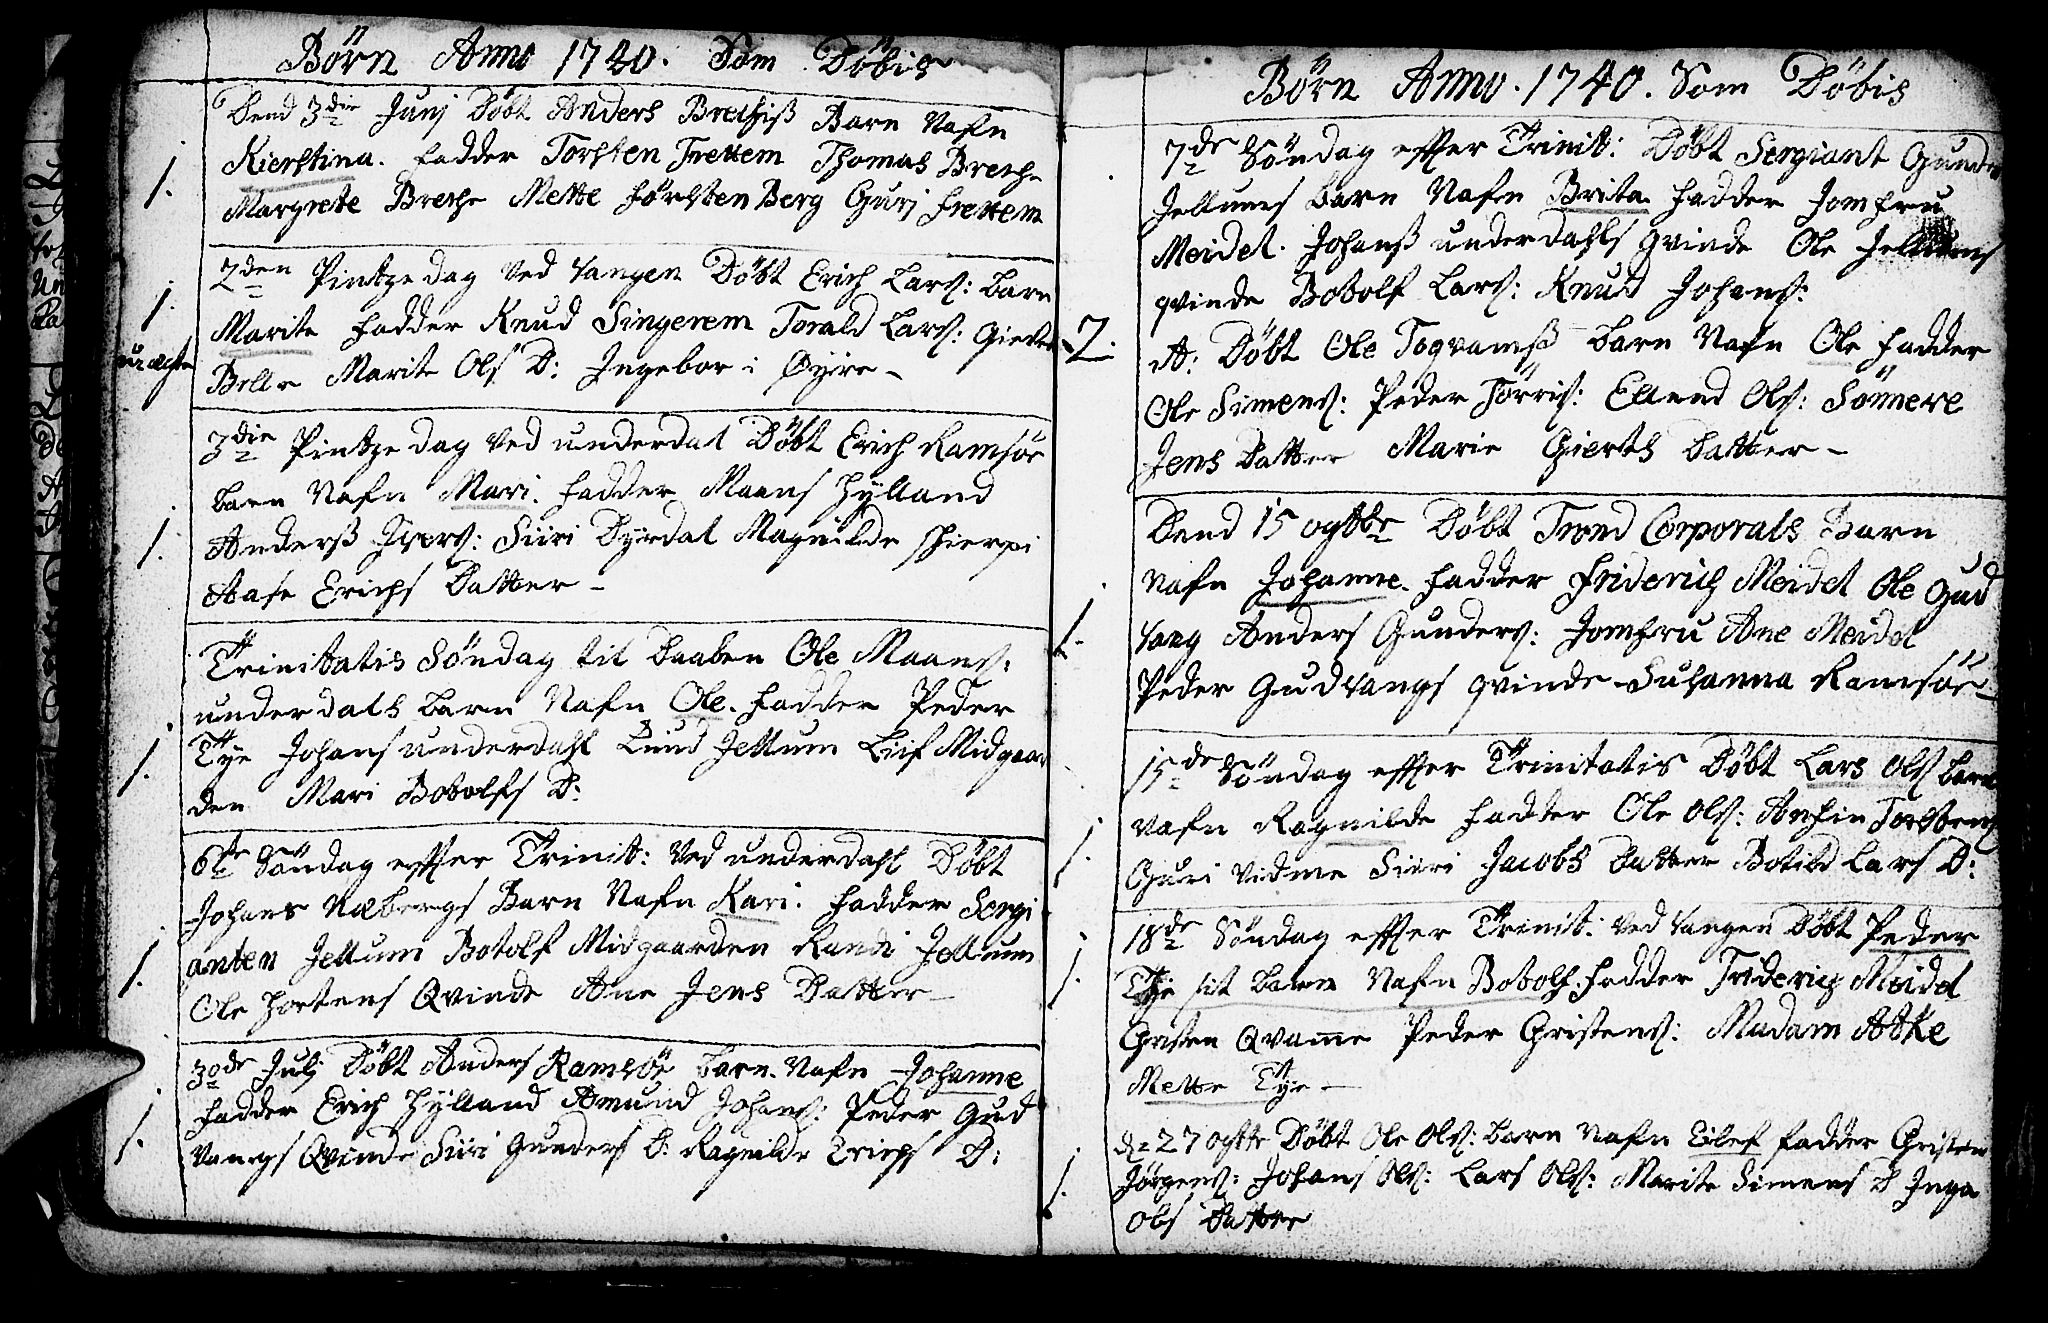 Börn Anno 1740. Som Döbis
Dend 3die Junj Döbt Anders Brechiß Barn Nafn
1. Kierstina. fadder Torsten Frettem Thomas Breche
Margrete Breche Mette Försten Berg Gurj Frettem
2den Pintzedag Ved Vangen Döbt Erich Lars: barn
1. Marite fadder Knud Singerem Torald Lars:
uægte
Marite Ols D: Ingebor i Øyre
3die Pintzedag Ved underdal Döbt Erich Ramsöe
barn Nafn Mari. fadder Maans Hylland
1. Anderß Ivers: Siiri Dyrdal Magnilde
Aase Erichs Datter
Trinitatis Söndag til Daaben Ole Maans:
underdals barn Nafn Ole. fadder Peder
1. Tye Johans underdahl Jellum Leif Midgaar
den Mari Bobolfs D:
6te Söndag effter Trinit: Ved underdahl Döbt
Johans Næbergs Barn Nafn Kari. fadder Sergi
1. anten Jellum Botolf Midgaarden Randi Jellum
Ole Hortens Qvinde Ane Jens Datter
30de Julj Döbt Anders Ramsöe barn Nafn Johanne
1. fadder Erich Hylland Amund Johans: Peder Gud
Vangs Qvinde Siiri Gunders D: Ragnilde Erichs D:
Börn Anno. 1740. Som Döbis
7de Söndag effter Trinit: Döbt Sergiant Gunder
Jellums barn Nafn Brita fadder Jomfru
Meidel. Johanß underdahls qvinde Ole Jellums
qvinde Bobolf Lars: Knud Johans:
2. Döbt Ole Toqvamß barn Nafn Ole fadder
Ole Simens: Peder Törris: Ellend Ols: Sönneve
Jens Datter Marie Gierts Datter
Dend 15 ogtbr Döbt Trond Corporals Barn
Nafn Johanne. fadder Friderich Meidel Ole Gud
1. Vang Anders Gunders: Jomfru Ane Meidel
Peder Gudvangs qvinde Suhanna Ramsöe
15de Söndag effter Trinitatis Döbt Lars Ols barn
Nafn Ragnilde fadder Ole Ols: Anfin Torstens
1. Guri Vidme Siiri Jacobs Datter Botild Lars D:
18de Söndag effter Trinit: Ved Vangen Döbt Peder
1. Tye sit barn Nafn Bobolf. fadder Friderich Meidel
Christen Qvamme Peder Christens: Madam Atke
Mette Tye
d 27 ogtb Döbt Ole Ols: barn Nafn Eilef fadder Christen
1. Jörgens: Johans Ols: Lars Ols: Marite Simens D Inga
Ols Datter